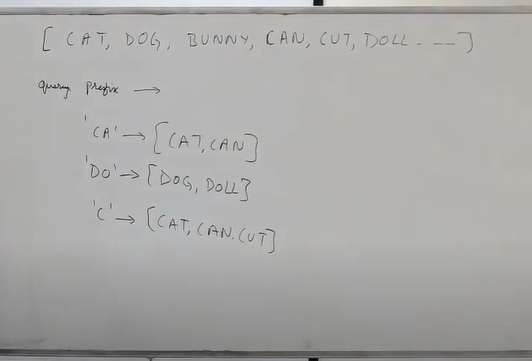 [ CAT, DOG, BUNNY, CAN, CUT, DOLL - -- ]
query prefix →
'CA' → [CAT, CAN]
'DO' → [DOG, DOLL]
'C' → [CAT, CAN, CUT]